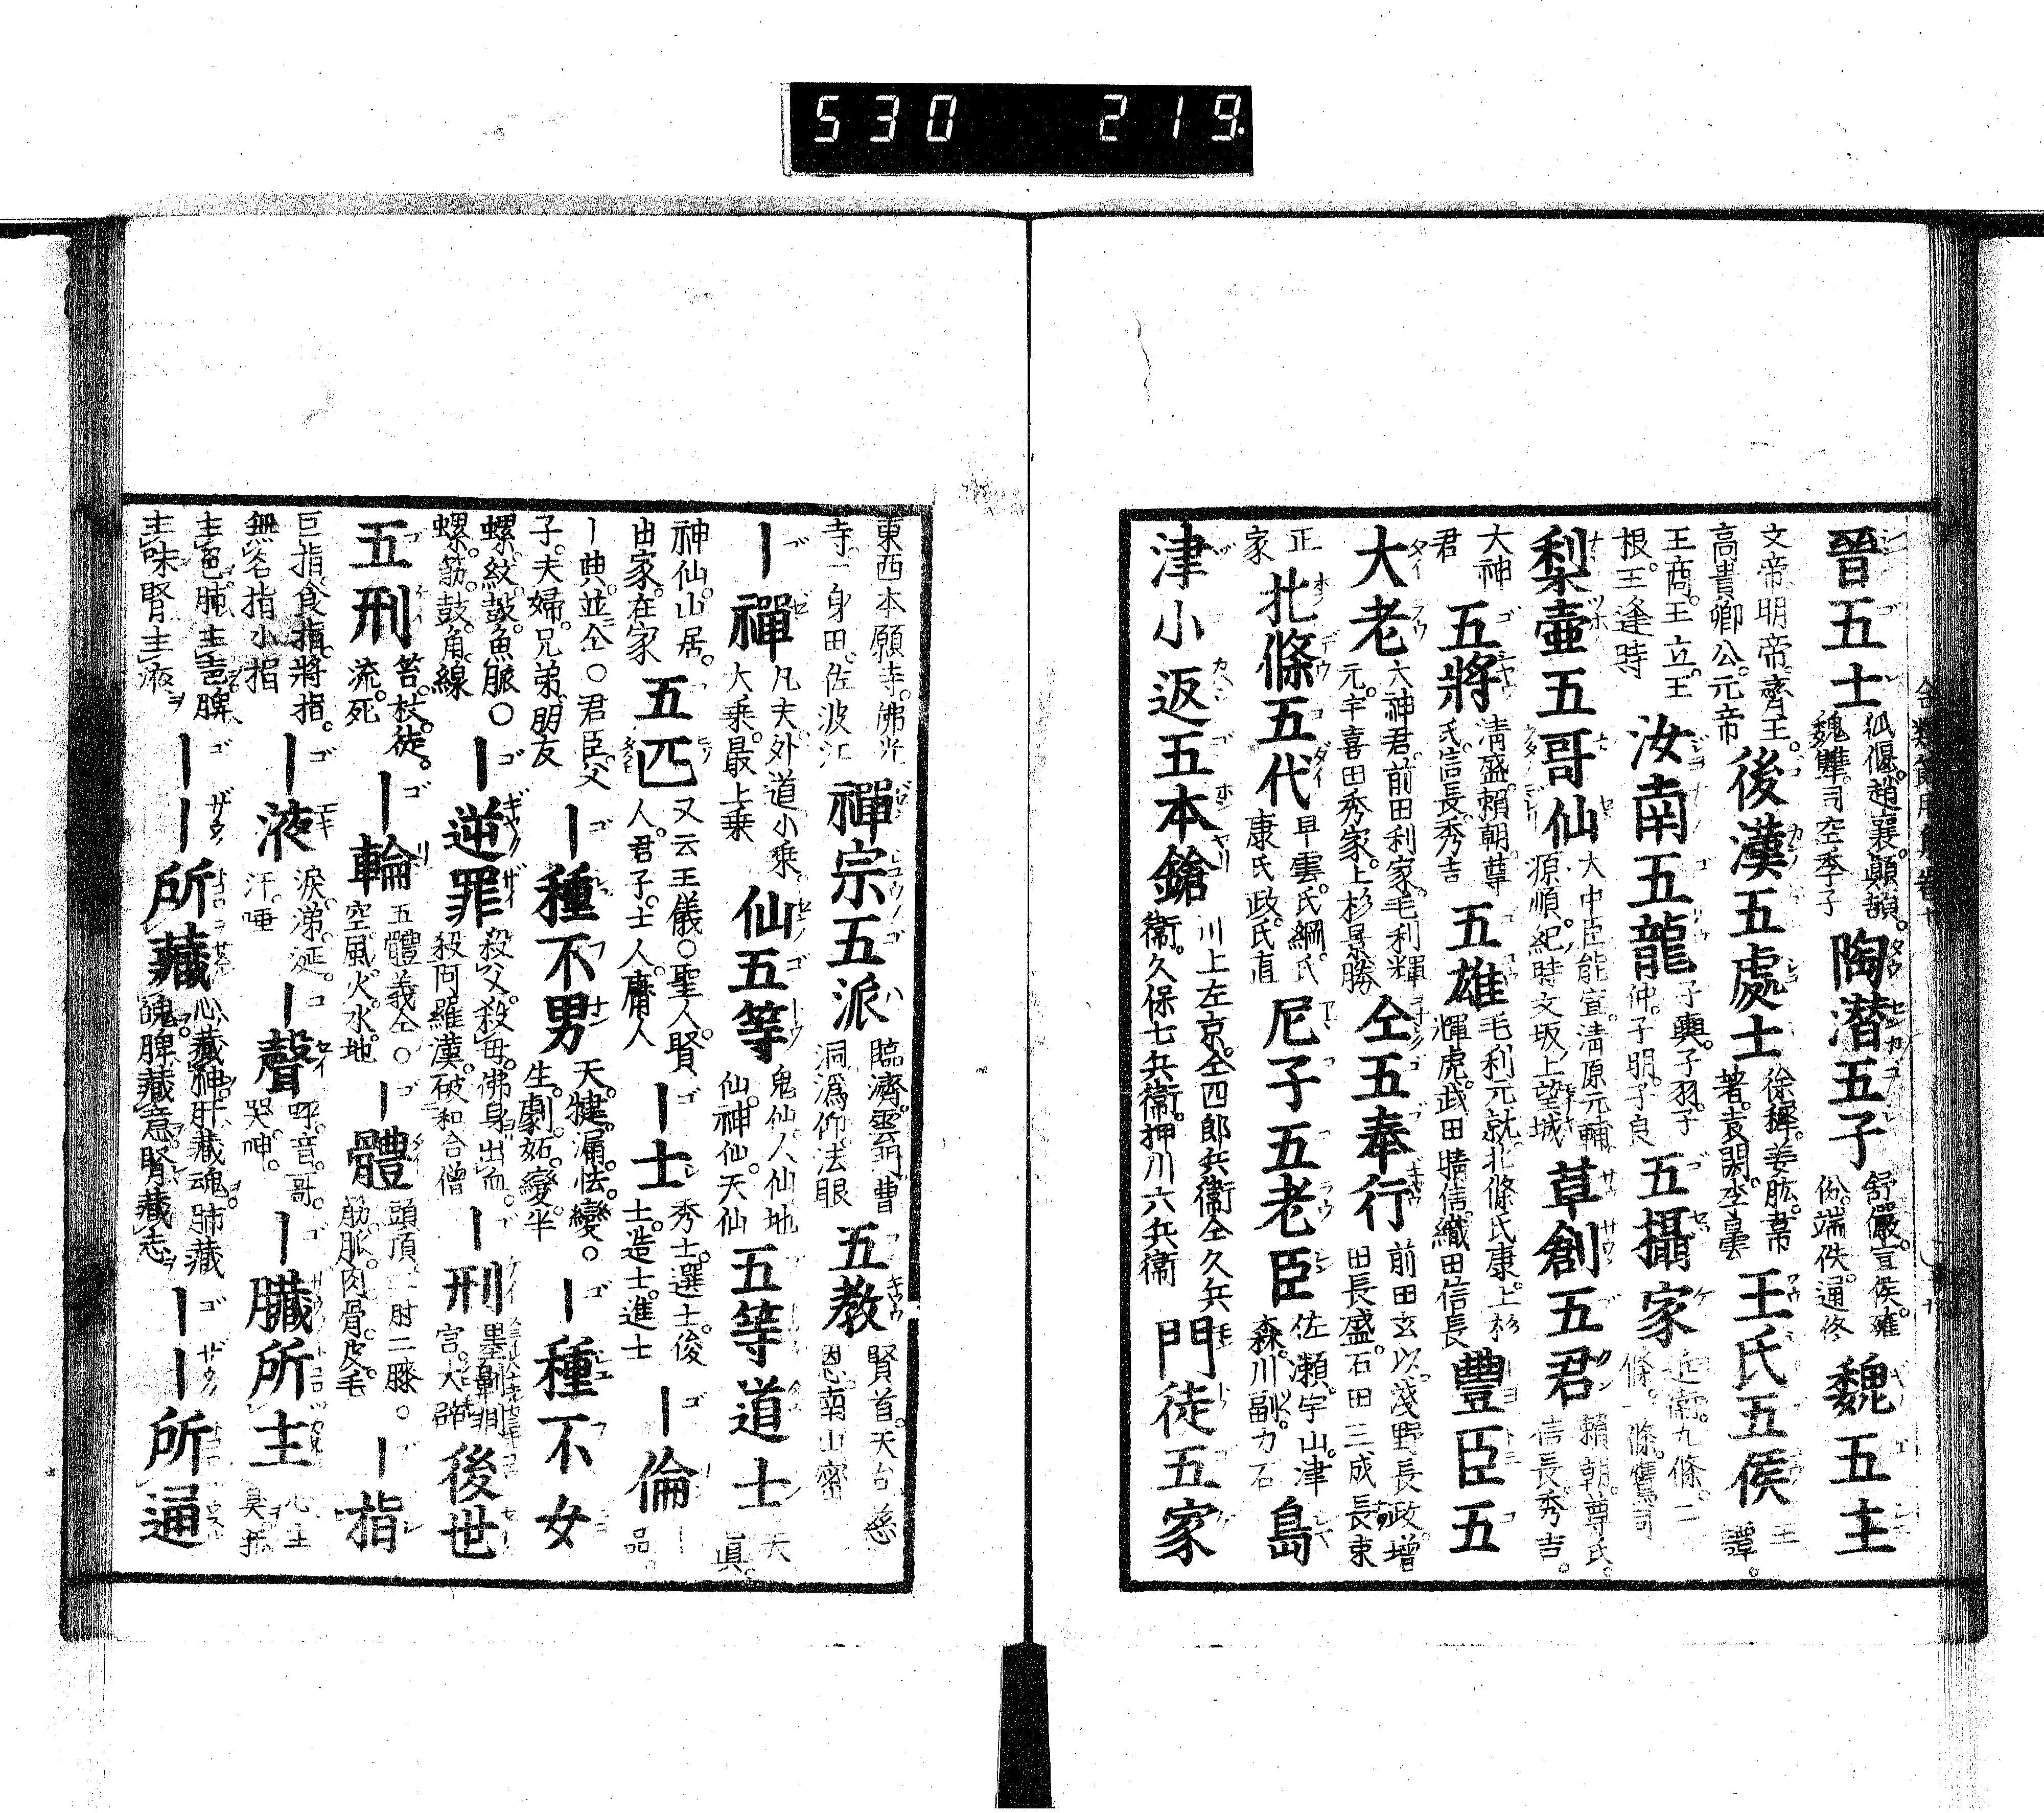 530 219.
晉五士 狐偃。趙襄。顛頡。魏犨。司空季子 陶潜五子 舒儼。宣俟。雍份。端佚。通佟 魏五主
文帝明帝齊王。高貴卿公。元帝 後漢五處士 徐穉。姜肱。韋著。袁閎。李曇 王氏五侯 王譚。
王商。王立。王根。王逢時 汝南五龍 子輿。子羽。子仲。子明。子良 五攝家 近衞。九條。二條。一條。鷹司
梨壷五哥仙 大中臣能宣。清原元輔源順。紀時文坂上望城 草創五君 頼朝。尊氏。信長。秀吉。
大神君 五將 清盛。頼朝。尊氏。信長。秀吉 五雄 毛利元就。北條氏康。上杉輝虎。武田晴信。織田信長 豊臣五
大老 大神君。前田利家。毛利輝元。宇喜田秀家。上杉景勝 仝五奉行 前田玄以。淺野長政。増田長盛。石田三成長束
正家 北條五代 早雲。氏綱。氏康。氏政。氏直 尼子五老臣 佐瀬。宇山。津森。川副。力石 島
津小返五本鎗 川上左京。仝四郎兵衞仝久兵衞。久保七兵衞。押川六兵衞 門徒五家
東西本願寺。佛光寺一身田。佐波江 禪宗五派 臨濟。雲門。曹洞。潙仰。法眼 五教 賢首。天台。慈恩。南山。密
〡禪 凡夫。外道。小乗。大乗。最上乗 仙五等 鬼仙。人仙。地仙。神仙。天仙 五等道士 天眞。
神仙。山居。出家。在家 五匹 又云王儀〇聖人。賢人。君子。士人。庸人 〡士 秀士。選士。後士。造士。進士 〡倫 〡品。
〡典。並仝〇君臣。父子。夫婦。兄弟。朋友 〡種不男 天。犍。漏。怯。變〇生。劇。妬。變。半 〡種不女
螺。紋。鼓。魚。脈〇螺。筋。鼓。角。線 〡逆罪 殺父。殺母。佛身出血。殺阿羅漢。破和合僧 〡刑 墨。劓。剕。宮。大辟 後世
五刑 笞。杖。徒。流。死 〡輪 五體義仝〇空風火水地 〡體 頭頂二肘二膝〇筋。脈。肉骨皮毛 〡指
巨指。食指。將指。無名指小指 〡液 涙。涕。涎。汗。唾 〡聲 呼。音。哥。哭。呻。 〡臓所主 心主臭。
主色。肺主聲。脾主味。腎主液 〡〡所藏 心藏神。肝藏魂。肺藏魄。脾藏意。腎藏志 〡〡所通